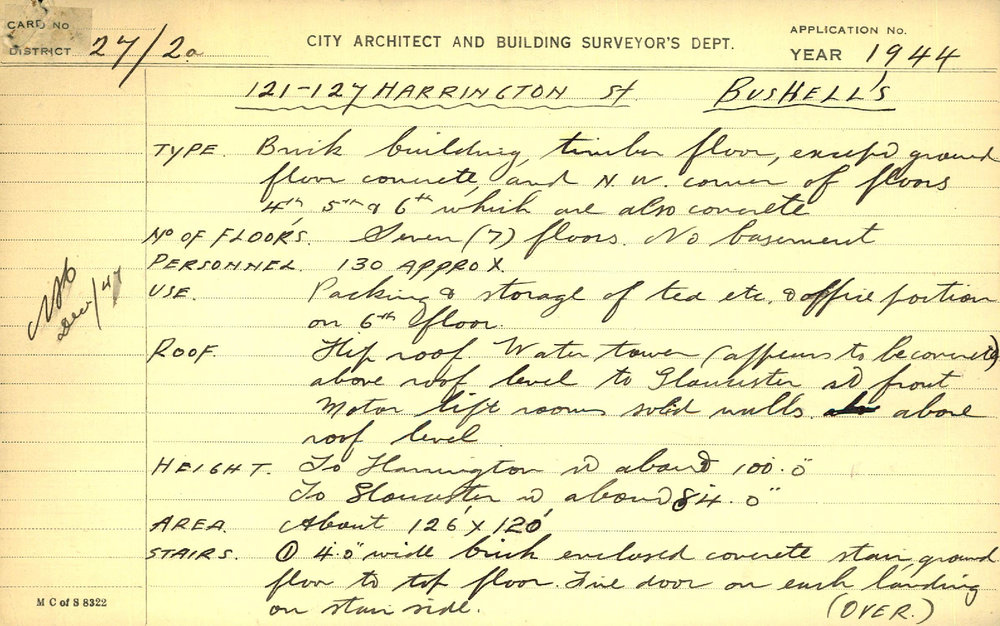 CARD No
DISTRICT 27/2a
CITY ARCHITECT AND BUILDING SURVEYOR'S DEPT.
APPLICATION No.
YEAR 1944
121-127 HARRINGTON St. BUSHELL'S
TYPE. Brick building, timber floor, except ground
floor concrete, and N.W. corner of floors
4th, 5th & 6th which are also concrete
No OF FLOORS. Seven (7) floors. No basement
PERSONNEL. 130 APPROX.
USE. Packing & storage of tea etc. & office portion
on 6th floor.
ROOF. Hip roof. Water tower (appears to be concrete)
above roof level to Gloucester st front
Motor lift rooms solid walls above
roof level
HEIGHT. To Harrington st about 100'.0"
To Gloucester st about 84'.0"
AREA. About 126' x 120'
STAIRS. ① 4'.0" wide brick enclosed concrete stair, ground
floor to top floor. Fire door on each landing
on stair side.
(OVER.)
Dec/47
M C of S 8322